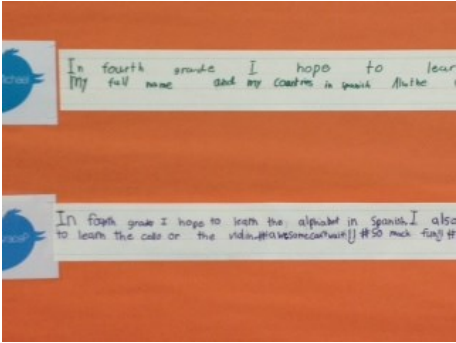 In fourth grade I hope to lear
My full name and my countries in spanish All the
In fourth grade I hope to learn the alphabet in Spanish. I also
to learn the cello or the violin.#awesomecan'twait!! #so much fun!! #